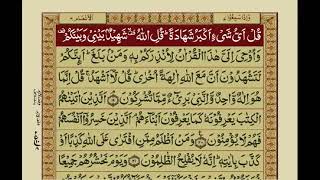 وَاِذَا سَمِعُوْا ٧
الانعام ٦
قُلْ اَیُّ شَیْءٍ اَكْبَرُ شَهَادَةً ؕ قُلِ اللّٰهُ ۙ شَهِیْدٌۢ بَیْنِیْ وَبَیْنَكُمْ ۫
وَاُوْحِیَ اِلَیَّ هٰذَا الْقُرْاٰنُ لِاُنْذِرَكُمْ بِهٖ وَمَنْۢ بَلَغَ ؕ اَئِنَّكُمْ
لَتَشْهَدُوْنَ اَنَّ مَعَ اللّٰهِ اٰلِهَةً اُخْرٰی ؕ قُلْ لَّاۤ اَشْهَدُ ۚ قُلْ اِنَّمَا
هُوَ اِلٰهٌ وَّاحِدٌ وَّاِنَّنِیْ بَرِیْٓءٌ مِّمَّا تُشْرِكُوْنَ ۘ اَلَّذِیْنَ اٰتَیْنٰهُمُ
الْكِتٰبَ یَعْرِفُوْنَهٗ كَمَا یَعْرِفُوْنَ اَبْنَآءَهُمْ ۘ اَلَّذِیْنَ خَسِرُوْۤا اَنْفُسَهُمْ
فَهُمْ لَا یُؤْمِنُوْنَ وَمَنْ اَظْلَمُ مِمَّنِ افْتَرٰی عَلَی اللّٰهِ كَذِبًا اَوْ
كَذَّبَ بِاٰیٰتِهٖ ؕ اِنَّهٗ لَا یُفْلِحُ الظّٰلِمُوْنَ وَیَوْمَ نَحْشُرُهُمْ جَمِیْعًا